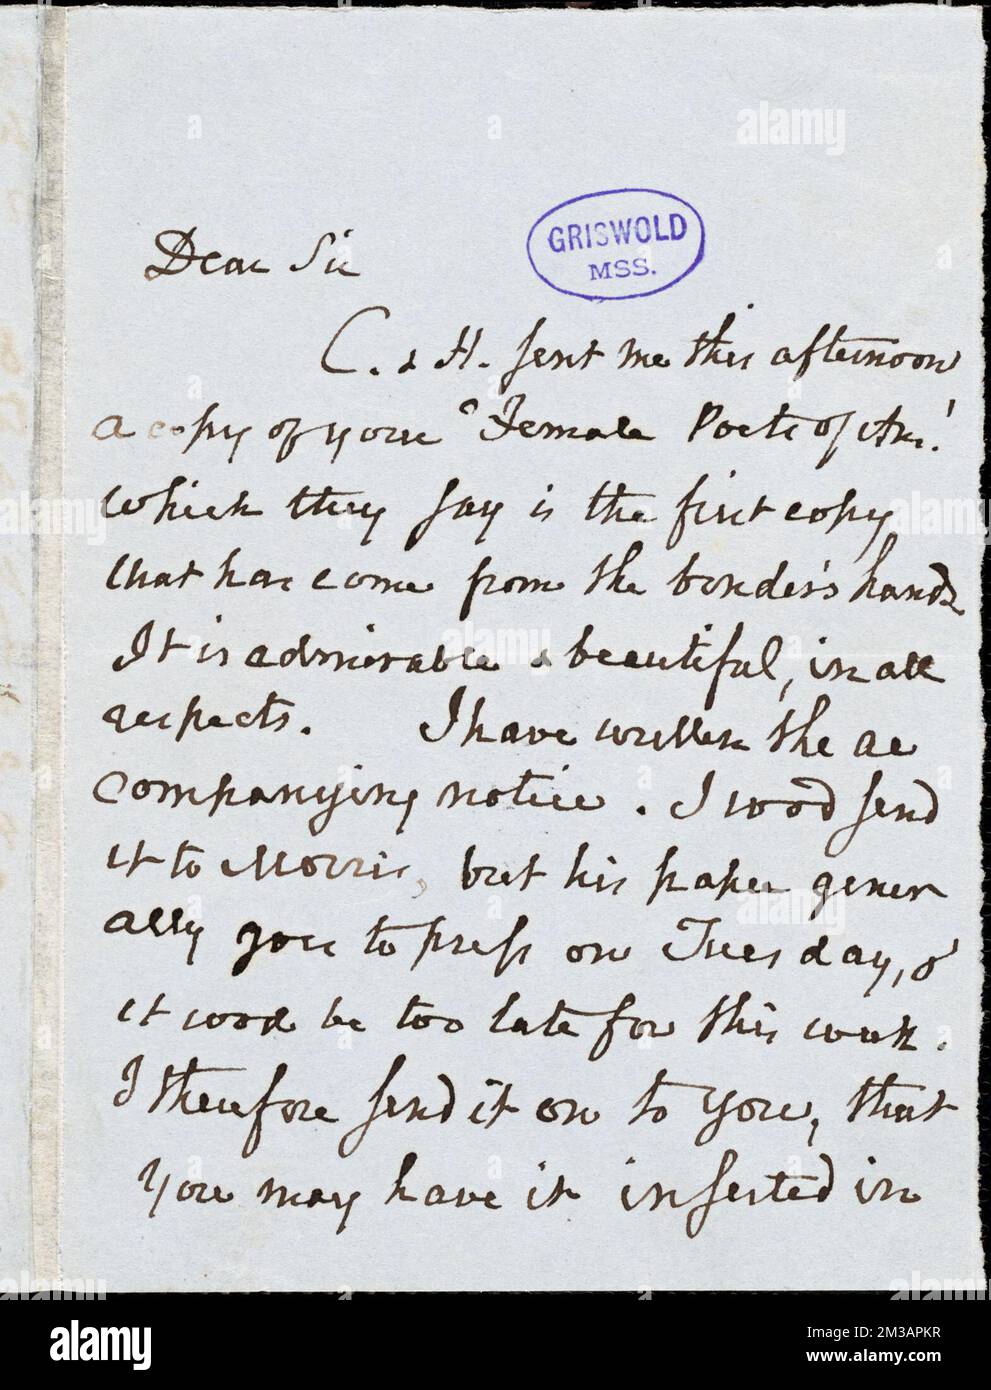 Dear Sir
GRISWOLD
MSS.
C. & H. sent me this afternoon
a copy of your "Female Poets of Am."
which they say is the first copy
that has come from the binder's hands
It is admirable & beautiful, in all
respects. I have written the ac
companying notice. I wood send
it to Morris, but his paper gener
ally goes to press on Tuesday, &
it wood be too late for this week.
I therefore send it on to you, that
you may have it inserted in
alamy
Image ID: 2M3APKR
www.alamy.com